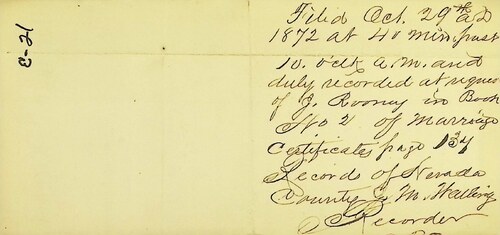 E-21
Filed Oct. 29th A.D
1872 at 40 min. past
10. o'clk A.M. and
duly recorded at reques
of J. Rooney in Book
No 2 of Marriage
Certificates page 134
Records of Nevada
County M. Walling
Recorder